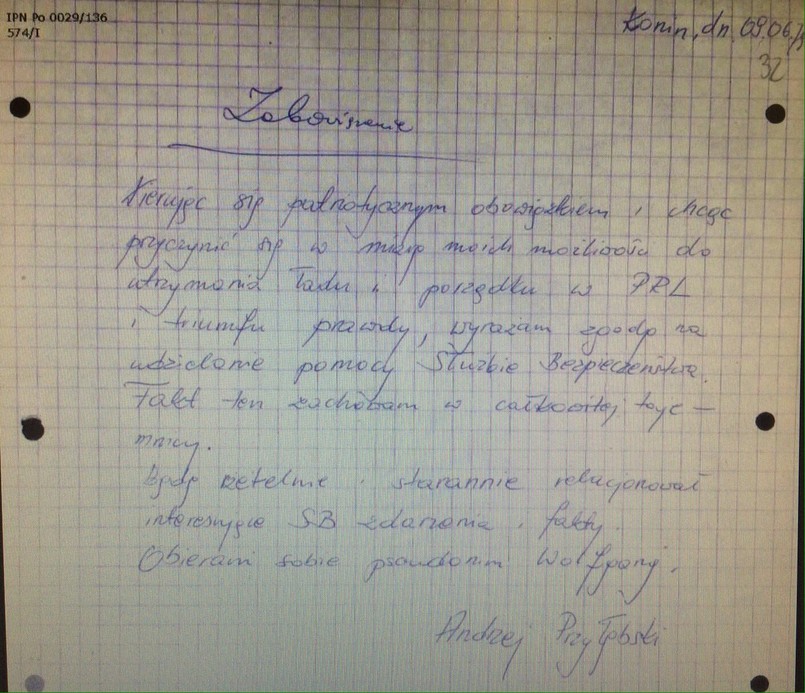 IPN Po 0029/136
574/I
Konin, dn. 09.06.
32
Zobowiązanie
Kierując się patriotycznym obowiązkiem i chcąc
przyczynić się w miarę moich możliwości do
utrzymania ładu i porządku w PRL
i triumfu prawdy, wyrażam zgodę na
udzielanie pomocy Służbie Bezpieczeństwa.
Fakt ten zachowam w całkowitej taje-
mnicy.
Będę rzetelnie i starannie relacjonował
interesujące SB zdarzenia i fakty.
Obieram sobie pseudonim Wolfgang.
Andrzej Przyłębski